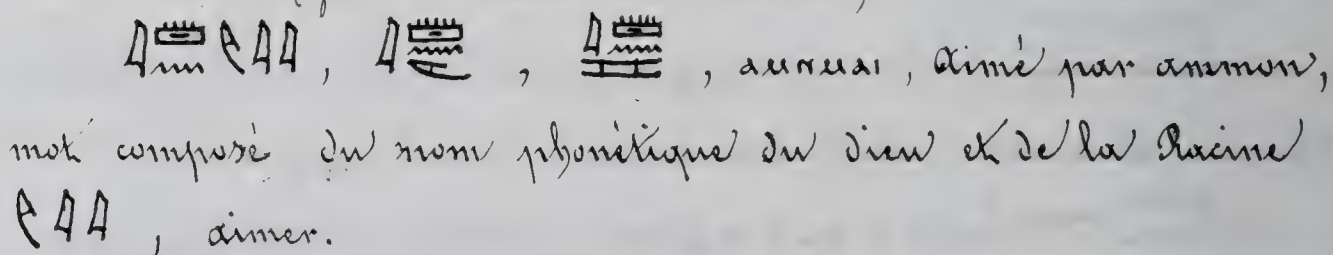 𓇋𓏠𓈖 𓇋𓇋, 𓇋𓏠𓈖 , 𓇋𓏠𓈖 , ⲁⲙⲛⲙⲁⲓ, aimé par ammon,
mot composé du nom phonétique du dieu et de la Racine
𓇋𓇋 , aimer.